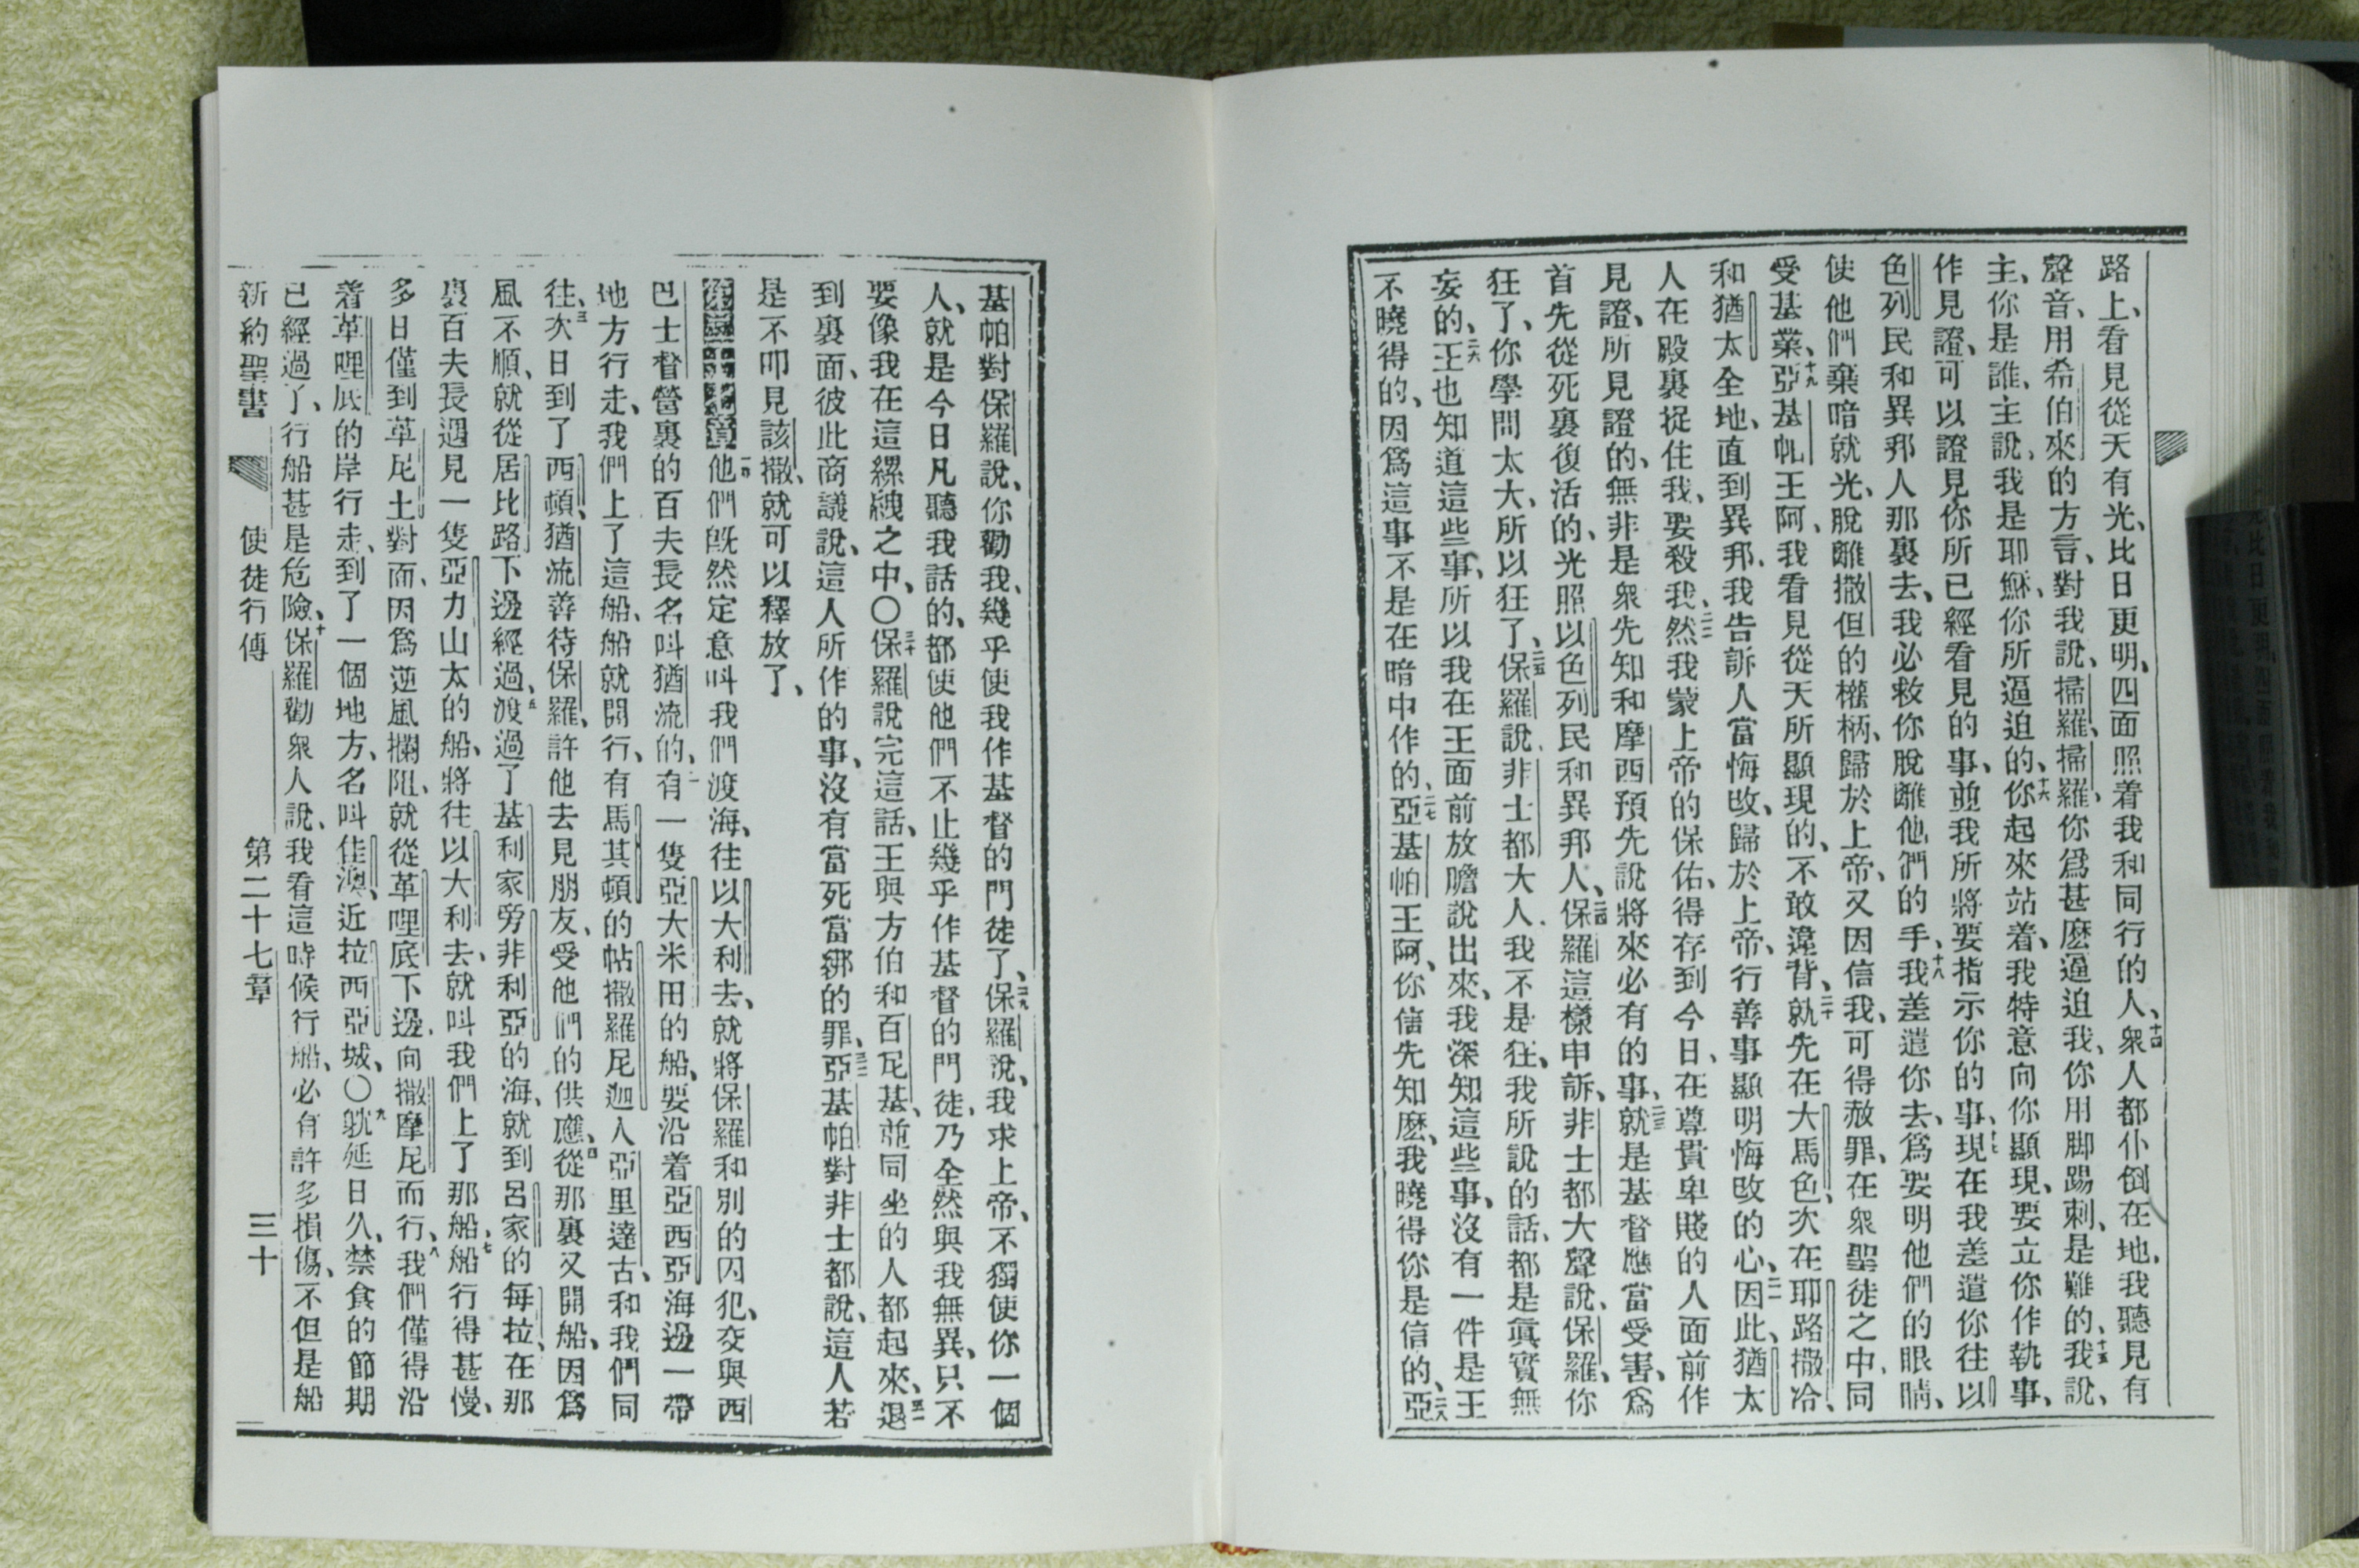 路上、看見從天有光、比日更明、四面照着我和同行的人、十四衆人都仆倒在地、我聽見有
聲音、用希伯來的方言、對我說、掃羅、掃羅、你爲甚麽逼迫我、你用脚踢刺、是難的、十五我說、
主、你是誰、主說、我是耶穌、你所逼迫的、十六你起來站着、我特意向你顯現、要立你作執事、
作見證、可以證見你所已經看見的事、並我所將要指示你的事、十七現在我差遣你往以
色列民和異邦人那裏去、我必救你脫離他們的手、十八我差遣你去、爲要明他們的眼睛、
使他們棄暗就光、脫離撒但的權柄、歸於上帝、又因信我、可得赦罪、在衆聖徒之中、同
受基業、十九亞基帕王阿、我看見從天所顯現的、不敢違背、二十就先在大馬色、次在耶路撒冷、
和猶太全地、直到異邦、我告訴人當悔改、歸於上帝、行善事顯明悔改的心、二一因此、猶太
人在殿裏捉住我、要殺我、二二然我蒙上帝的保佑、得存到今日、在尊貴卑賤的人面前作
見證、所見證的、無非是衆先知和摩西預先說將來必有的事、二三就是基督應當受害、爲
首先從死裏復活的、光照以色列民和異邦人、二四保羅這樣申訴、非士都大聲說、保羅、你
狂了、你學問太大、所以狂了、二五保羅說、非士都大人、我不是狂、我所說的話、都是眞實無
妄的、二六王也知道這些事、所以我在王面前放膽說出來、我深知這些事、沒有一件是王
不曉得的、因爲這事不是在暗中作的、二七亞基帕王阿、你信先知麽、我曉得你是信的、二八亞
基帕對保羅說、你勸我、幾乎使我作基督的門徒了、二九保羅說、我求上帝、不獨使你一個
人、就是今日凡聽我話的、都使他們不止幾乎作基督的門徒、乃全然與我無異、只不
要像我在這縲絏之中、〇三十保羅說完這話、王與方伯和百尼基、並同坐的人都起來、三一退
到裏面、彼此商議說、這人所作的事、沒有當死當綁的罪、三二亞基帕對非士都說、這人若
是不叩見該撒、就可以釋放了、
第二十七章一他們旣然定意叫我們渡海、往以大利去、就將保羅和別的囚犯、交與西
巴士督營裏的百夫長名叫猶流的、二有一隻亞大米田的船、要沿着亞西亞海邊一帶
地方行走、我們上了這船、船就開行、有馬其頓的帖撒羅尼迦人亞里達古、和我們同
往、三次日到了西頓、猶流善待保羅、許他去見朋友、受他們的供應、四從那裏又開船、因爲
風不順、就從居比路下邊經過、五渡過了基利家旁非利亞的海、就到呂家的每拉、在那
裏百夫長遇見一隻亞力山太的船、將往以大利去、就叫我們上了那船、七船行得甚慢、
多日僅到革尼土對面、因爲逆風攔阻、就從革哩底下邊、向撒摩尼而行、八我們僅得沿
着革哩底的岸行走、到了一個地方、名叫佳澳、近拉西亞城、〇九躭延日久、禁食的節期
已經過了、行船甚是危險、十保羅勸衆人說、我看這時候行船、必有許多損傷、不但是船
新約聖書 使徒行傳 第二十七章 三十